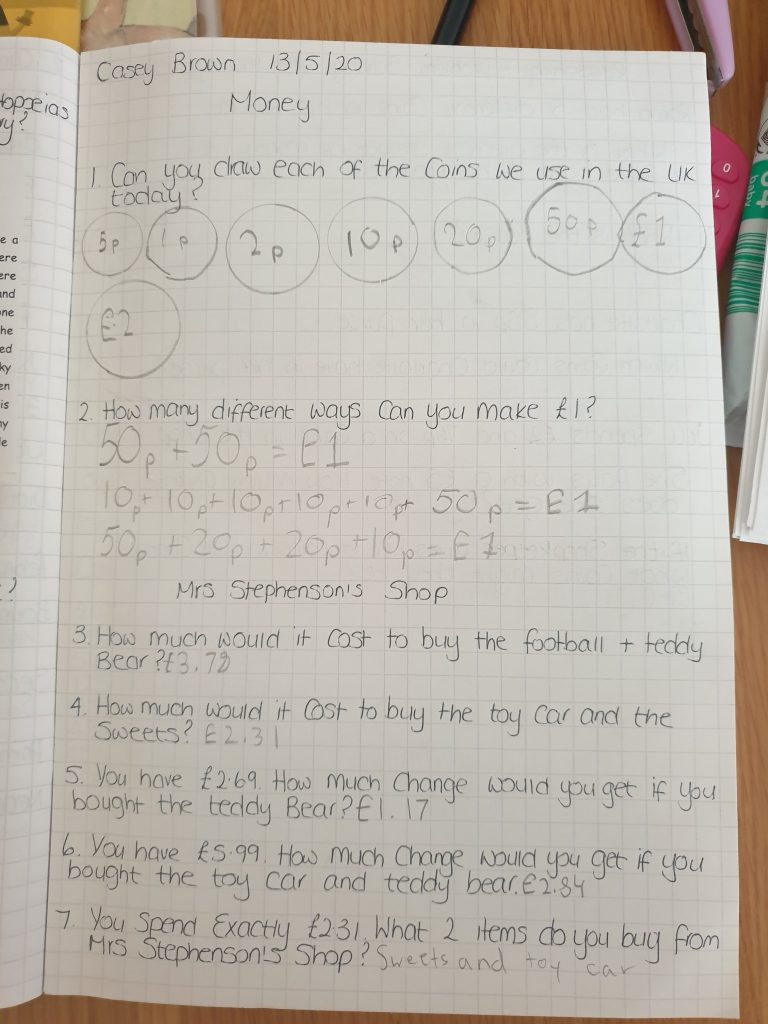 Casey Brown 13/5/20
Money
1. Can you draw each of the Coins we use in the UK
today?
5p 1p 2p 10p 20p 50p £1
£2
2. How many different ways Can you make £1?
50p + 50p = £1
10p + 10p + 10p + 10p + 10p + 50p = £1
50p + 20p + 20p + 10p = £1
Mrs Stephenson's Shop
3. How much would it Cost to buy the football + teddy
Bear? £3.78
4. How much would it Cost to buy the toy Car and the
Sweets? £2.31
5. You have £2.69. How much Change would you get if you
bought the teddy Bear? £1.17
6. You have £5.99. How much Change would you get if you
bought the toy Car and teddy bear. £2.84
7. You Spend Exactly £2.31. What 2 items do you buy from
Mrs Stephenson's Shop? Sweets and toy car